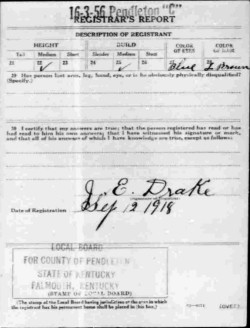 16-3-56 Pendleton "C"
REGISTRAR'S REPORT
DESCRIPTION OF REGISTRANT
HEIGHT BUILD COLOR OF EYES COLOR OF HAIR
Tall Medium Short Slender Medium Stout
21 22 ✓ 23 24 25 ✓ 26 27 Blue 28 Brown
29 Has person lost arm, leg, hand, eye, or is he obviously physically disqualified?
(Specify.)
30 I certify that my answers are true; that the person registered has read or has
had read to him his own answers; that I have witnessed his signature or mark,
and that all of his answers of which I have knowledge are true, except as follows:
J. E. Drake
Date of Registration Sep 12 1918
LOCAL BOARD
FOR COUNTY OF PENDLETON
STATE OF KENTUCKY
FALMOUTH, KENTUCKY
(STAMP OF LOCAL BOARD)
(The stamp of the Local Board having jurisdiction of the area in which
the registrant has his permanent home shall be placed in this box.)
(OVER)